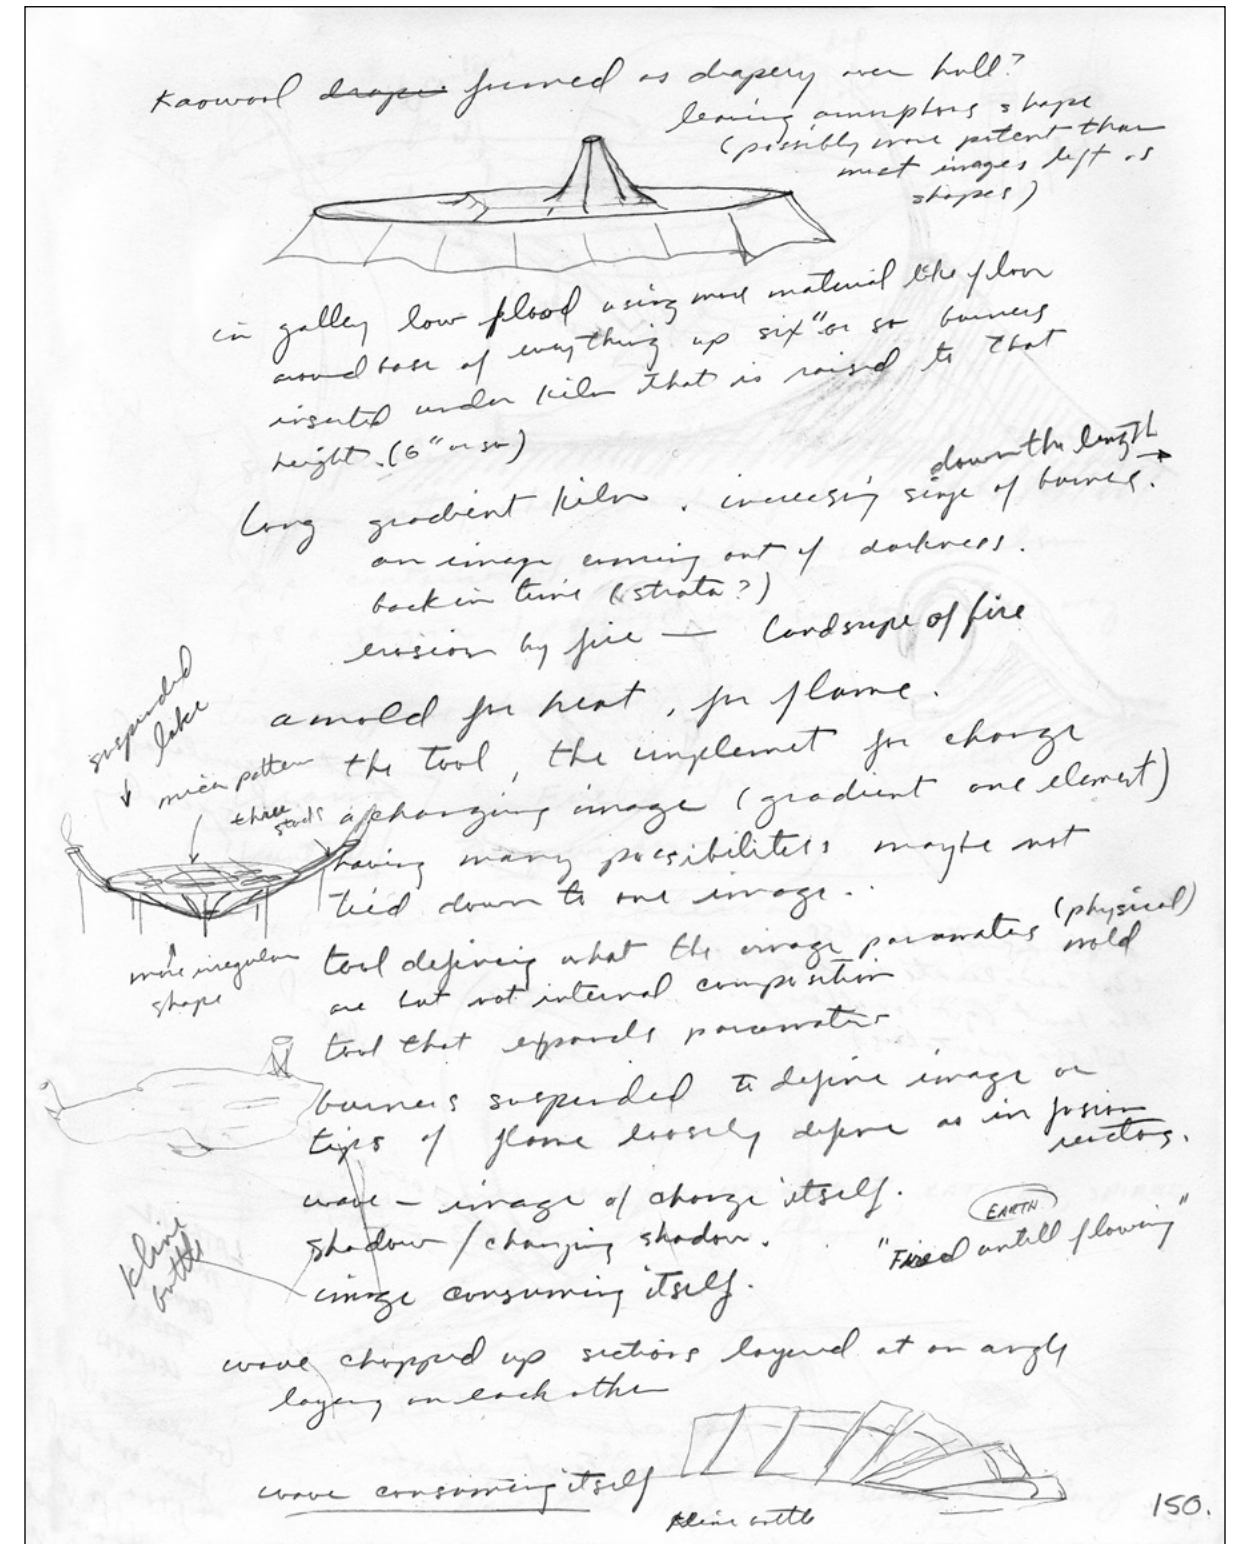 Kaowool drape formed as drapery over hull?
leaving amorphous shape
(possibly more potent than
most images left as
shapes)
in galley low flood using more material like floor
around base of everything up six" or so burners
inserted under kiln that is raised to that
height. (6" or so)
down the length
Long gradient kiln, increasing size of burners.
an image coming out of darkness.
back in time (strata?)
erosion by fire — Landscape of fire
suspended
lake
a mold for heat, for flame.
the tool, the implemet for change
pattern
three
a changing image (gradient one element)
having many possibilities maybe not
tied down to one image.
tool defining what the image paramaters (physical)
mold
are but not internal composition
more irregular
shape
tool that expands paramaters
burners suspended to define image or
tips of flame loosely define as in fusion
reactors.
wave – image of change itself.
EARTH
shadow / changing shadow.
"Fired untill flowing"
kline
bottle
image consuming itself.
wave chopped up sections layered at an angle
laying on each other
wave consuming itself
kline bottle
150.